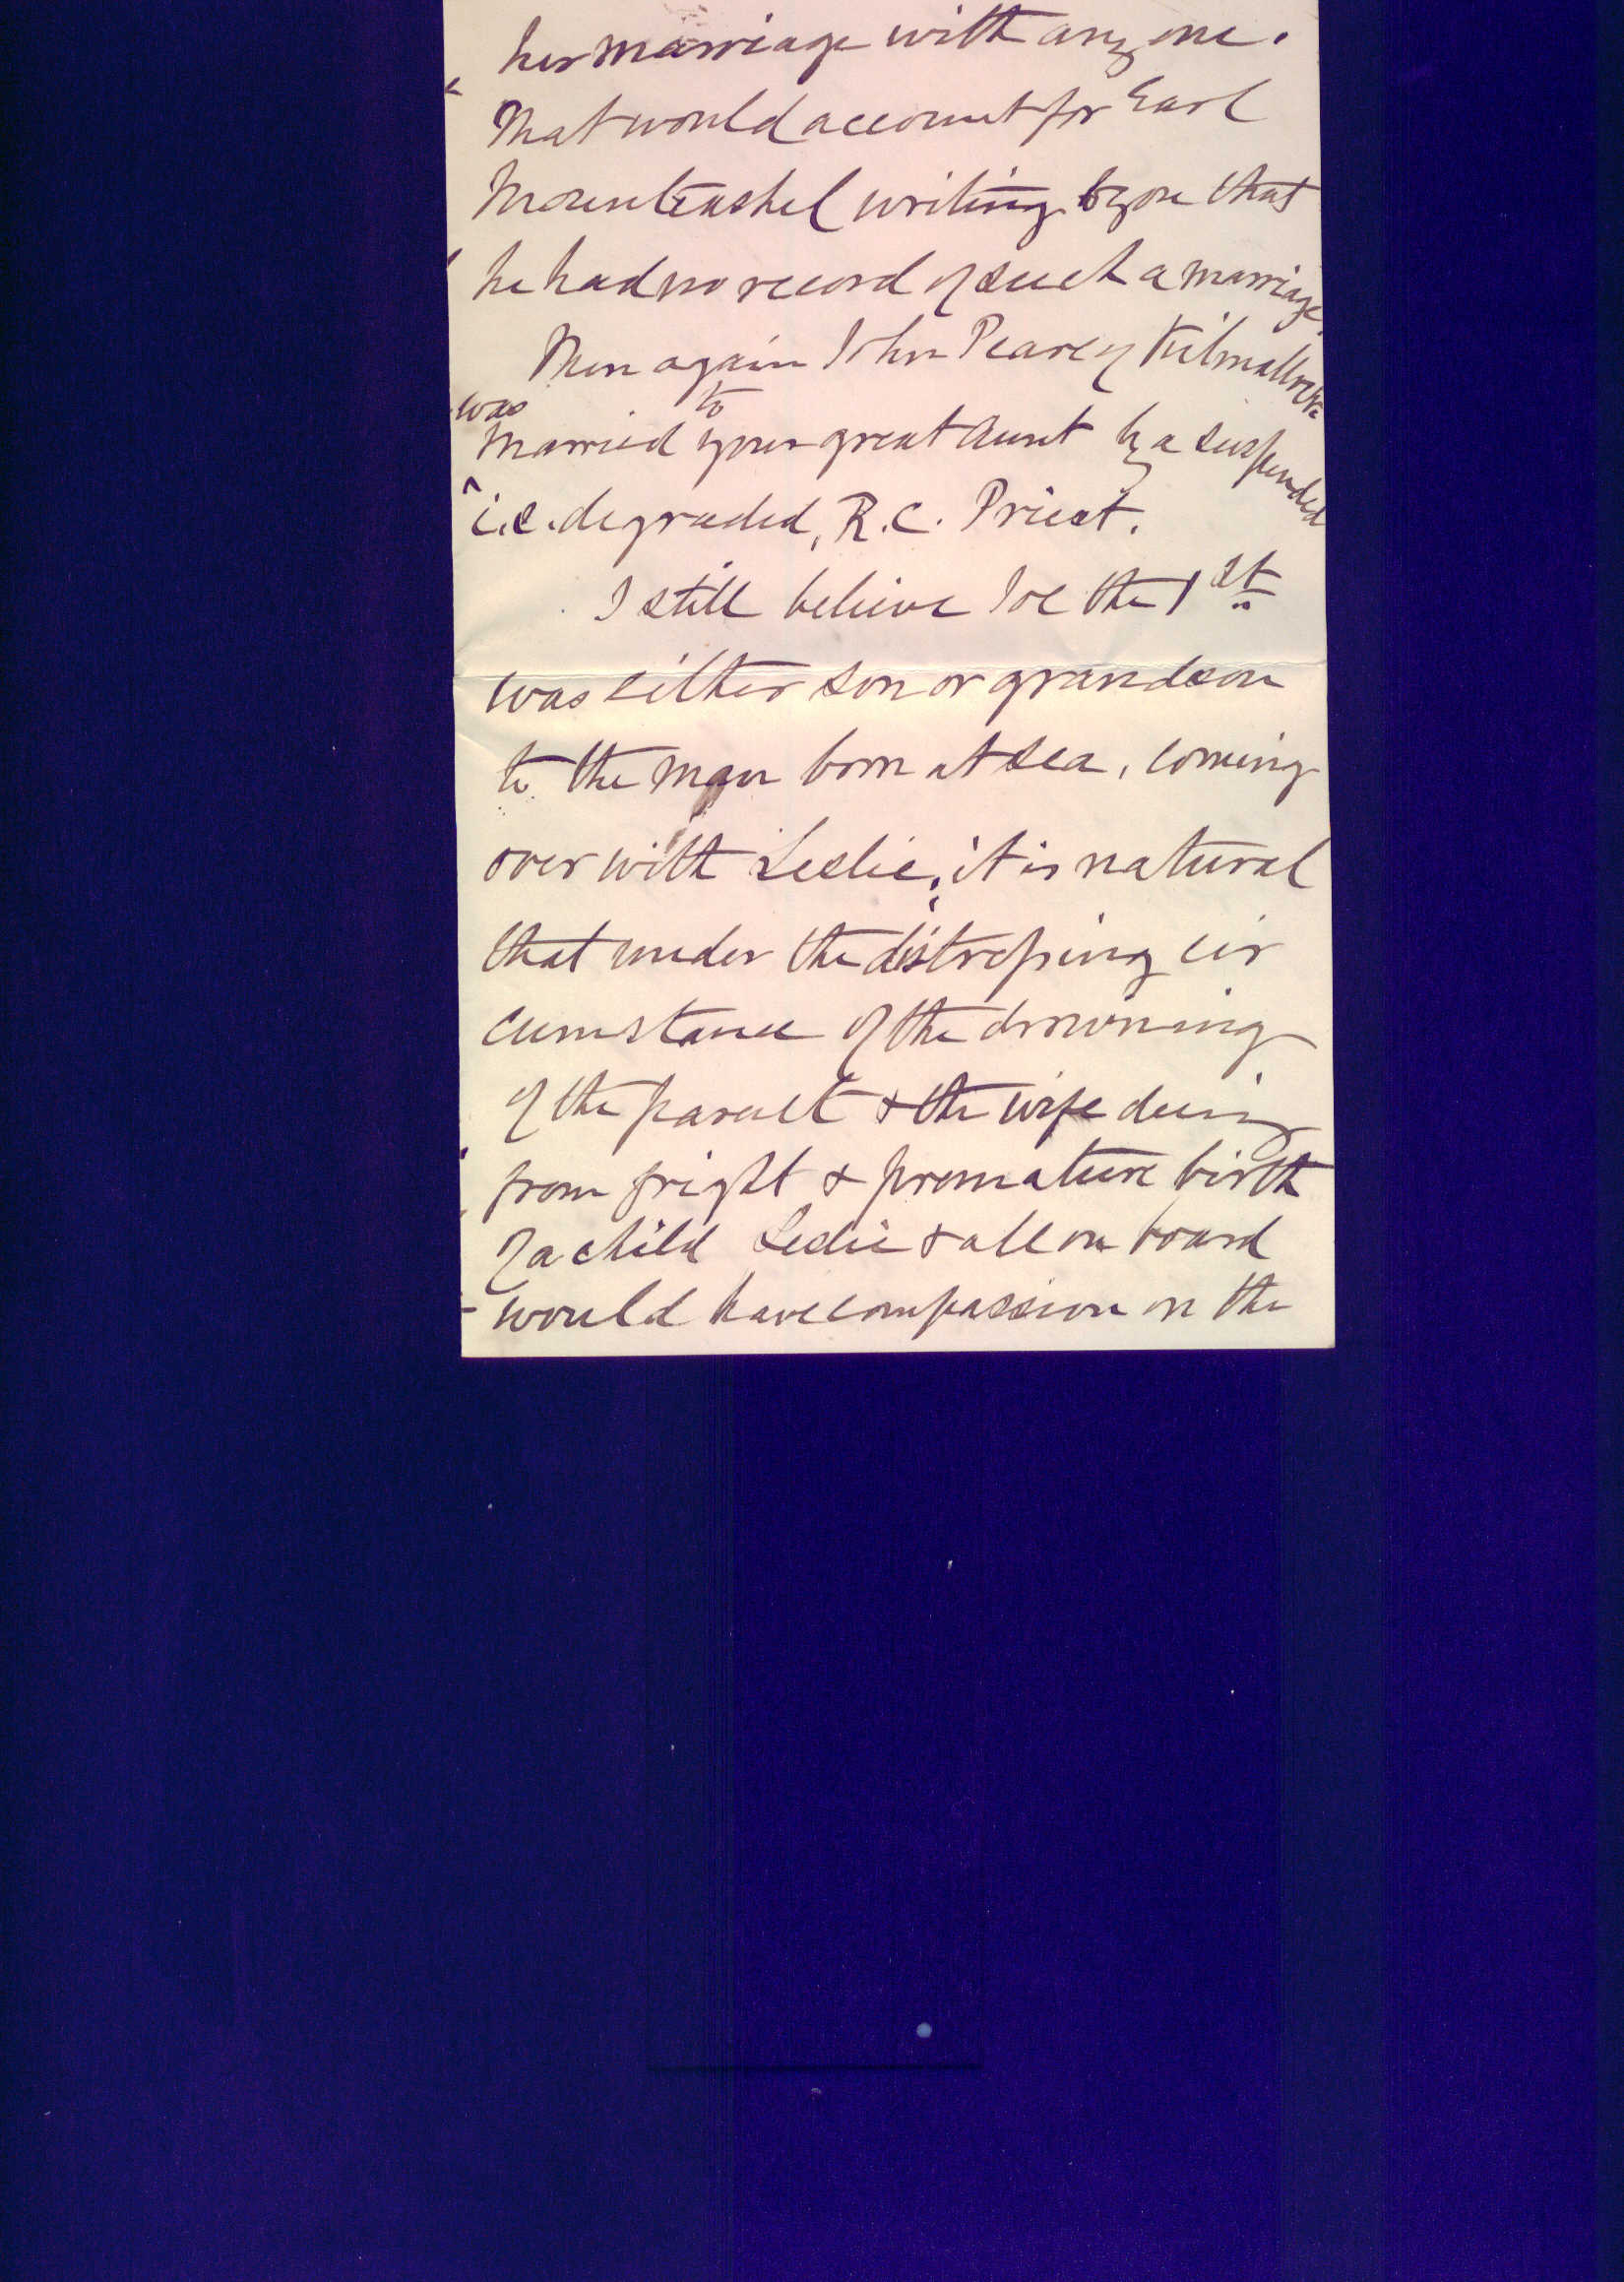 her marriage with any one.
That would account for Earl
Mountcashel writing to you that
he had no record of such a marriage.
Then again John Pearce of Kilmallock
was to
married your great aunt by a suspended
^ i.e. degraded, R.C. Priest.
I still believe Joe the 1st
was either son or grandson
to the man born at sea, coming
over with Leslie, it is natural
that under the distressing cir
cumstance of the drowning
of the parent & the wife dying
from fright & premature birth
of a child Leslie & all on board
would have compassion on the